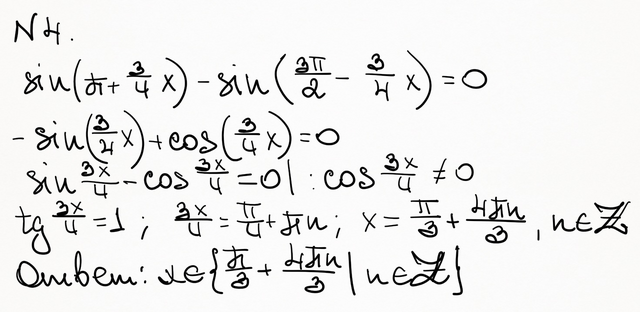 N4.
sin(π + 3/4 x) - sin(3π/2 - 3/4 x) = 0
- sin(3/4 x) + cos(3/4 x) = 0
sin 3x/4 - cos 3x/4 = 0 | : cos 3x/4 ≠ 0
tg 3x/4 = 1; 3x/4 = π/4 + πn; x = π/3 + 4πn/3, n∈ℤ
Ответ: x∈{π/3 + 4πn/3 | n∈ℤ}